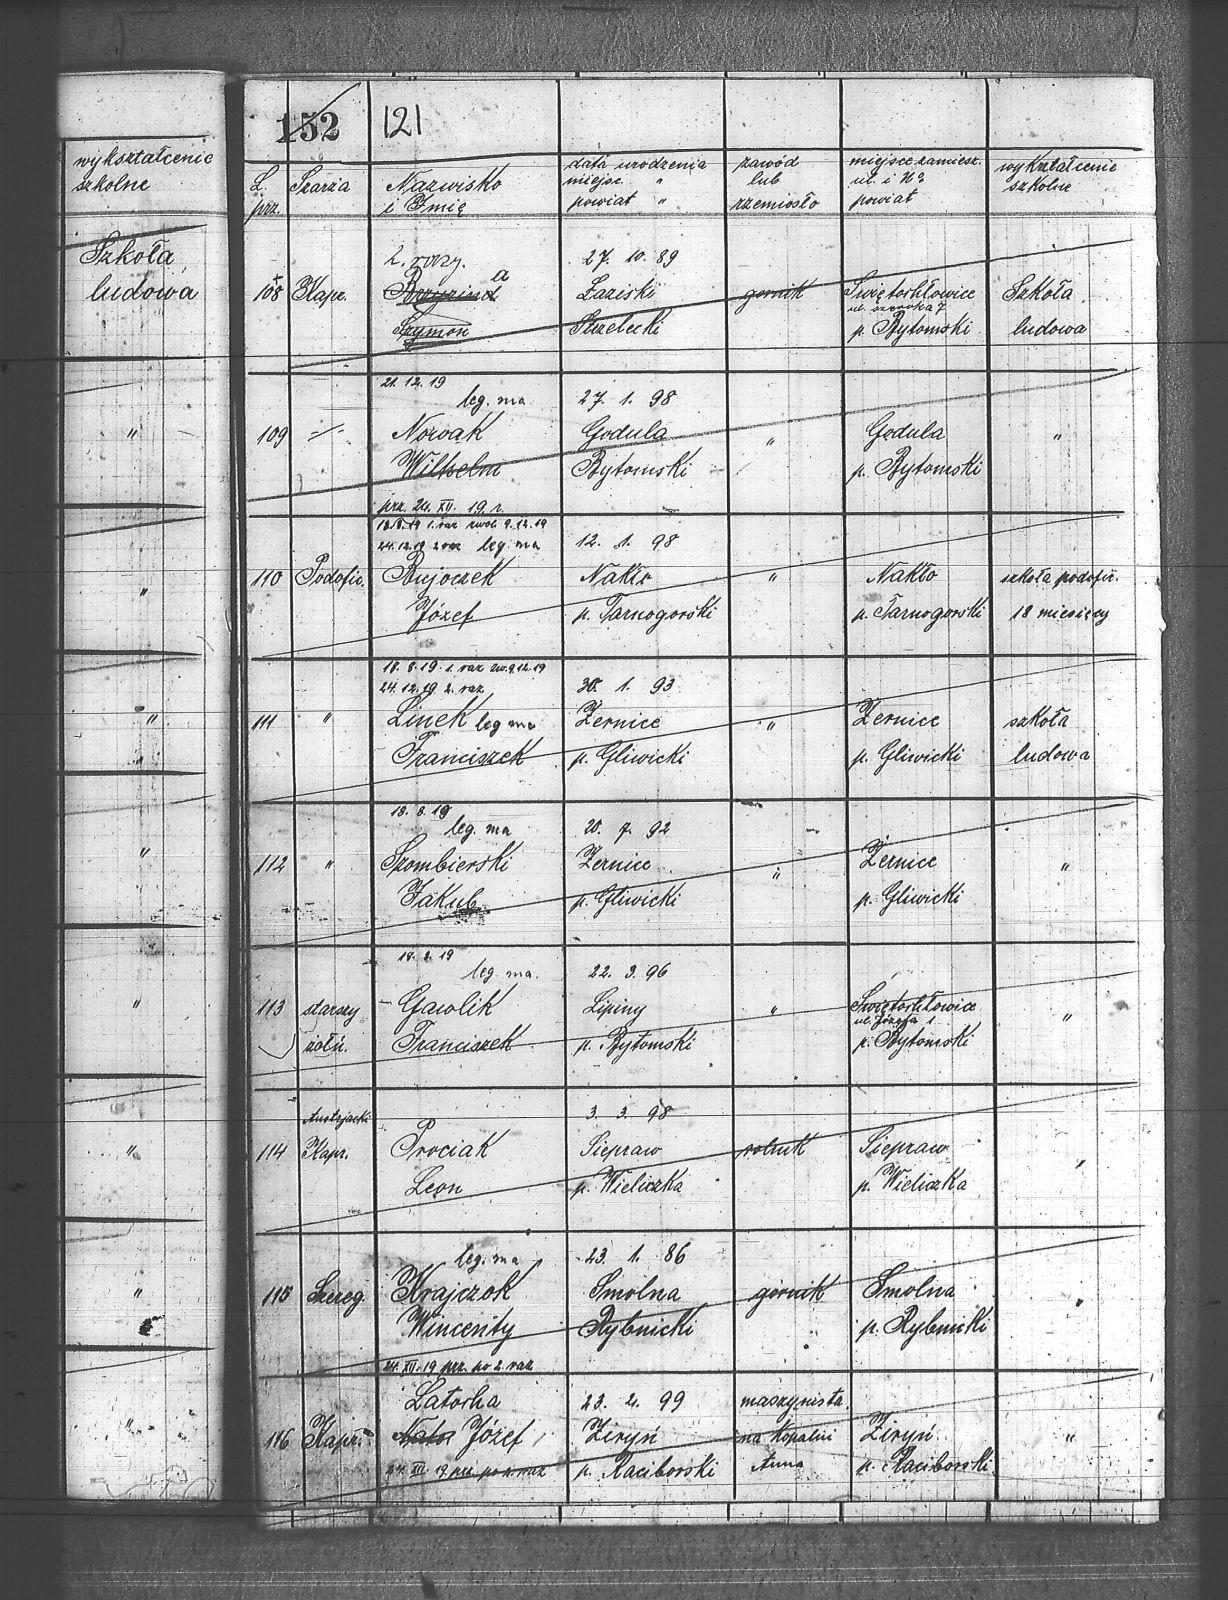 wykształcenie
szkolne
Szkoła
ludowa
"
"
"
"
"
"
"
152 121
L. prz. Szarża Nazwisko i Imię data urodzenia miejsc. " powiat " zawód lub rzemiosło miejsce zamiesz. ul. i No powiat wykształcenie szkolne
2. razy. 27. 10. 89
108 Kapr. a Łaziski górnik Świętochłowice Szkoła
ul. szeroka 7
Szymon Strzelecki p. Bytomski ludowa
21. 12. 19
leg. ma 27. 1. 98
109 -/- Nowak Godula " Godula "
Wilhelm Bytomski p. Bytomski
prz. 24. XII. 19. r.
18.8.19 1. raz zwol. 9.12.19
24.12.19 2 raz leg. ma 12. 1. 98
110 Podofic. Bujoczek Nakło " Nakło szkoła podofic.
Józef p. Tarnogorski p. Tarnogorski 18 miesięcy
18. 8. 19. 1. raz zw. 9.12.19
24. 12. 19 2. raz 30. 1. 93
111 " Linek leg ma Żernice " Żernice szkoła
Franciszek p. Gliwicki p. Gliwicki ludowa
18. 8. 19
leg. ma 20. 7. 92
112 " Szombierski Żernice " Żernice "
Jakub p. Gliwicki p. Gliwicki
leg. ma. 22. 3. 96
113 starszy Gawlik Lipiny " Świętochłowice "
ul. Józefa 1
żołn. Franciszek p. Bytomski p. Bytomski
Austrjacki 3. 3. 98
114 Kapr. Prociak Siepraw rolnik Siepraw "
Leon p. Wieliczka p. Wieliczka
leg. ma 23. 1. 86
115 Szereg. Krajczok Smolna górnik Smolna "
Wincenty Rybnicki p. Rybnicki
24. XII. 19 prz. po 2. raz
Latocha 23. 2. 99 maszynista
116 Kapr. Józef Ziryń na Kopalni Ziryń "
24. XII. 19. prz. po 2. raz p. Raciborski Anna p. Raciborski